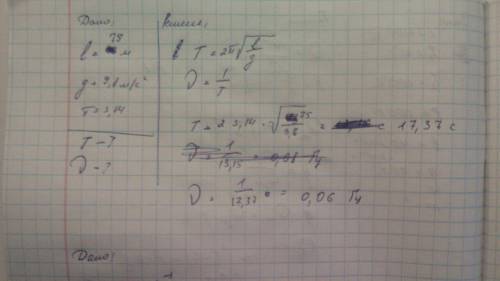 Дано:
l = 75 м
g = 9,8 м/с²
π = 3,14
T - ?
ν - ?
Решение:
T = 2π√(l/g)
ν = 1/T
T = 2 3,14 · √(75/9,8) = 17,37 с
ν = 1/13,15 = 0,08 Гц
ν = 1/17,37 = 0,06 Гц
Дано: